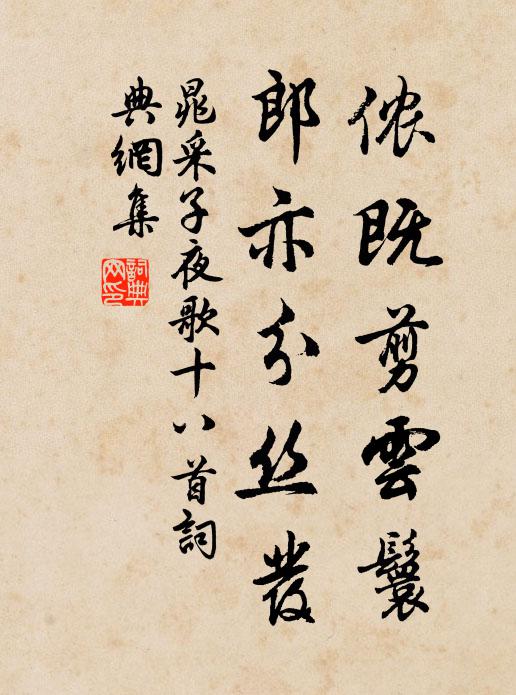 侬既剪雲鬟
郎亦分丝發
晁采子夜歌十八首詞
典網集
詞典
网印